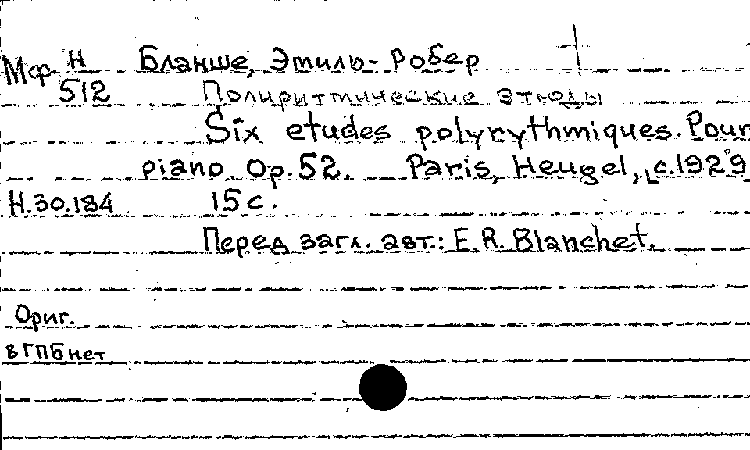 Мф Н Бланше, Эмиль-Робер
512 Полиритмические этюды
Six etudes polyrythmiques. Pour
piano Op.52. Paris, Heugel, c.1929
Н.30.184 15 с.
Перед загл. авт.: E.R. Blanchet.
Ориг.
в ГПБ нет